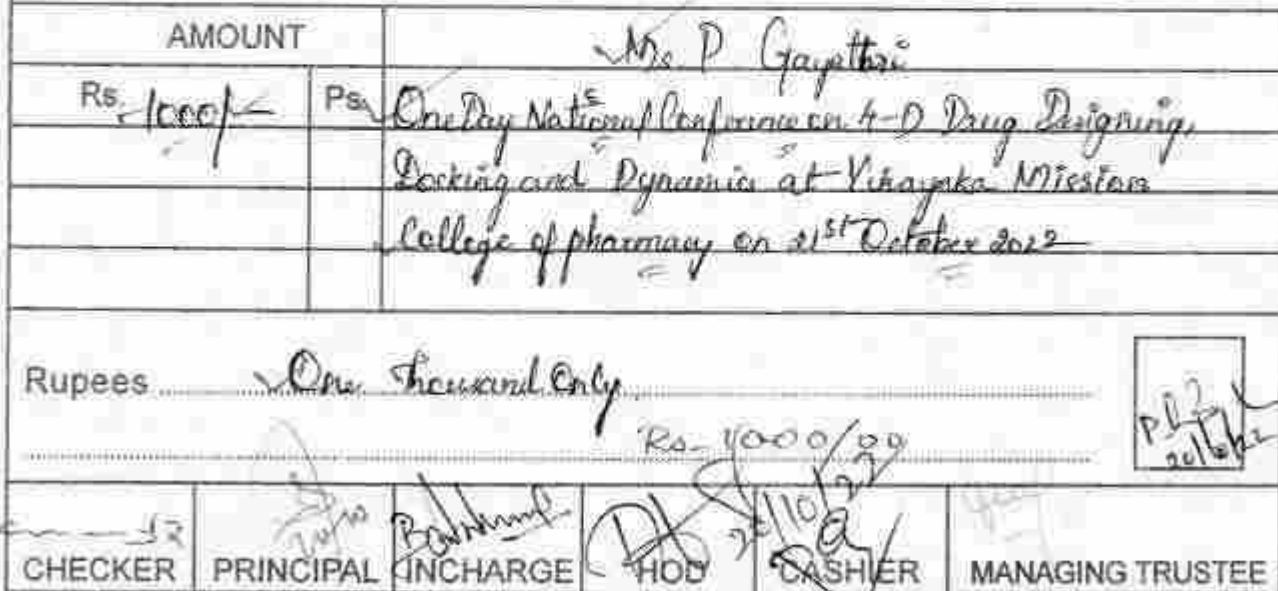 AMOUNT
Ms. P. Gayathri
Rs. 1000/- Ps.
One Day National Conference on 4-D Drug Designing,
Docking and Dynamics at Vinayaka Mission
College of pharmacy on 21st October 2022
Rupees One Thousand Only
Rs. 1000/00
20/10/22
CHECKER PRINCIPAL INCHARGE HOD CASHIER MANAGING TRUSTEE